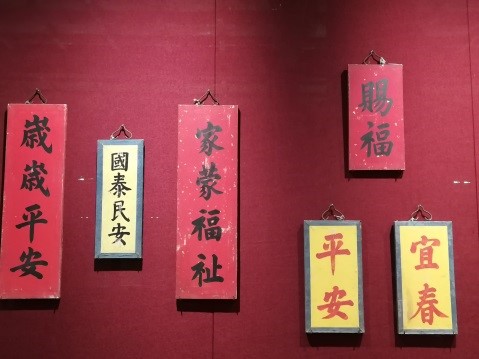 歲歲平安
國泰民安
家蒙福祉
賜福
平安
宜春